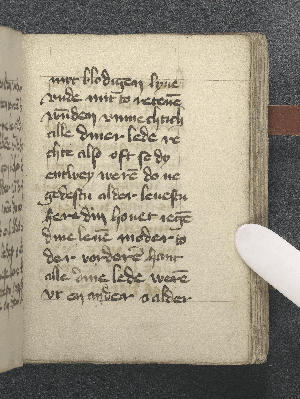 mit blodigen lyue
vnde mit to retenē
wnden vnmechtich
alle diner lede re
chte alse oft se dy
entwey werē do ne
gedestu alder leuestu
here din houet iegē
dine leuē moder to
der vorderē hant
alle dine lede werē
vt en ander o alder